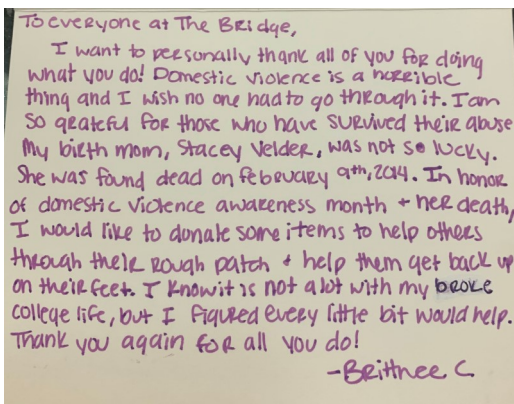 To everyone at The Bridge,
I want to personally thank all of you for doing
what you do! Domestic violence is a horrible
thing and I wish no one had to go through it. I am
so grateful for those who have survived their abuse
My birth mom, Stacey Velder, was not so lucky.
She was found dead on february 9th, 2014. In honor
of domestic violence awareness month + her death,
I would like to donate some items to help others
through their rough patch + help them get back up
on their feet. I know it is not a lot with my broke
college life, but I figured every little bit would help.
Thank you again for all you do!
-Brittnee C